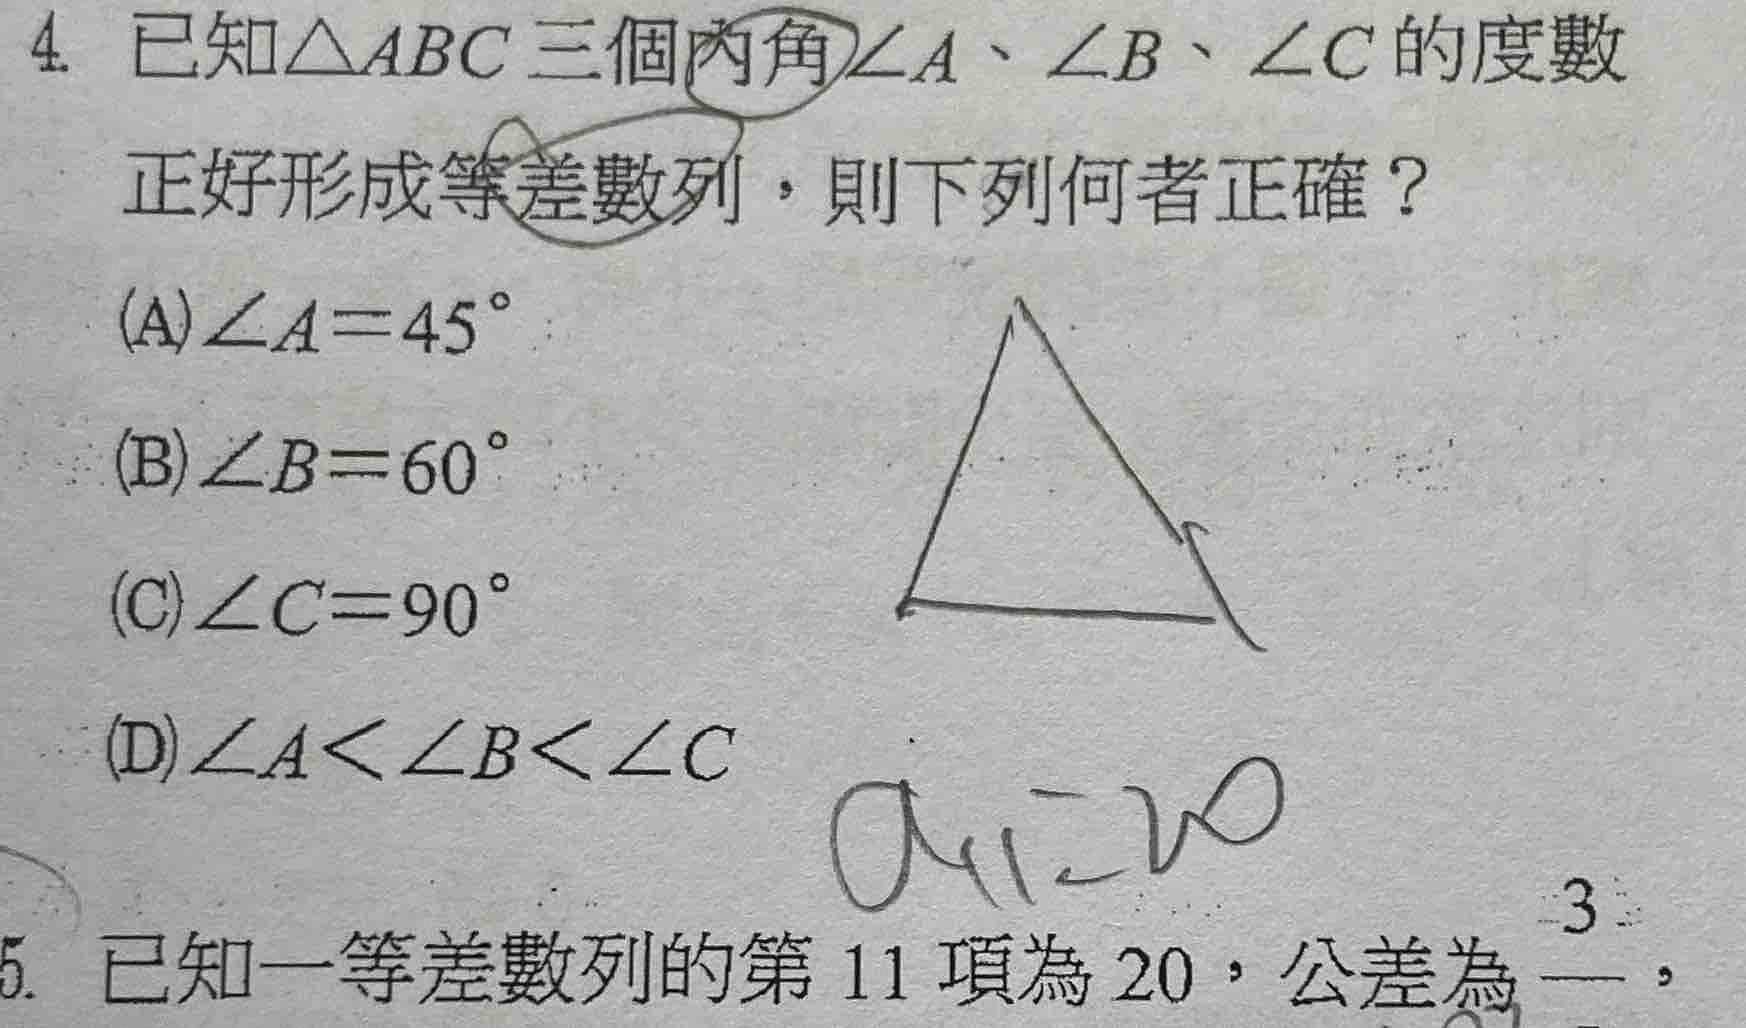 4. 已知△ABC 三個內角∠A、∠B、∠C 的度數
正好形成等差數列，則下列何者正確？
(A)∠A＝45°
(B)∠B＝60°
(C)∠C＝90°
(D)∠A＜∠B＜∠C
a₁₁=20
5. 已知一等差數列的第 11 項為 20，公差為 3